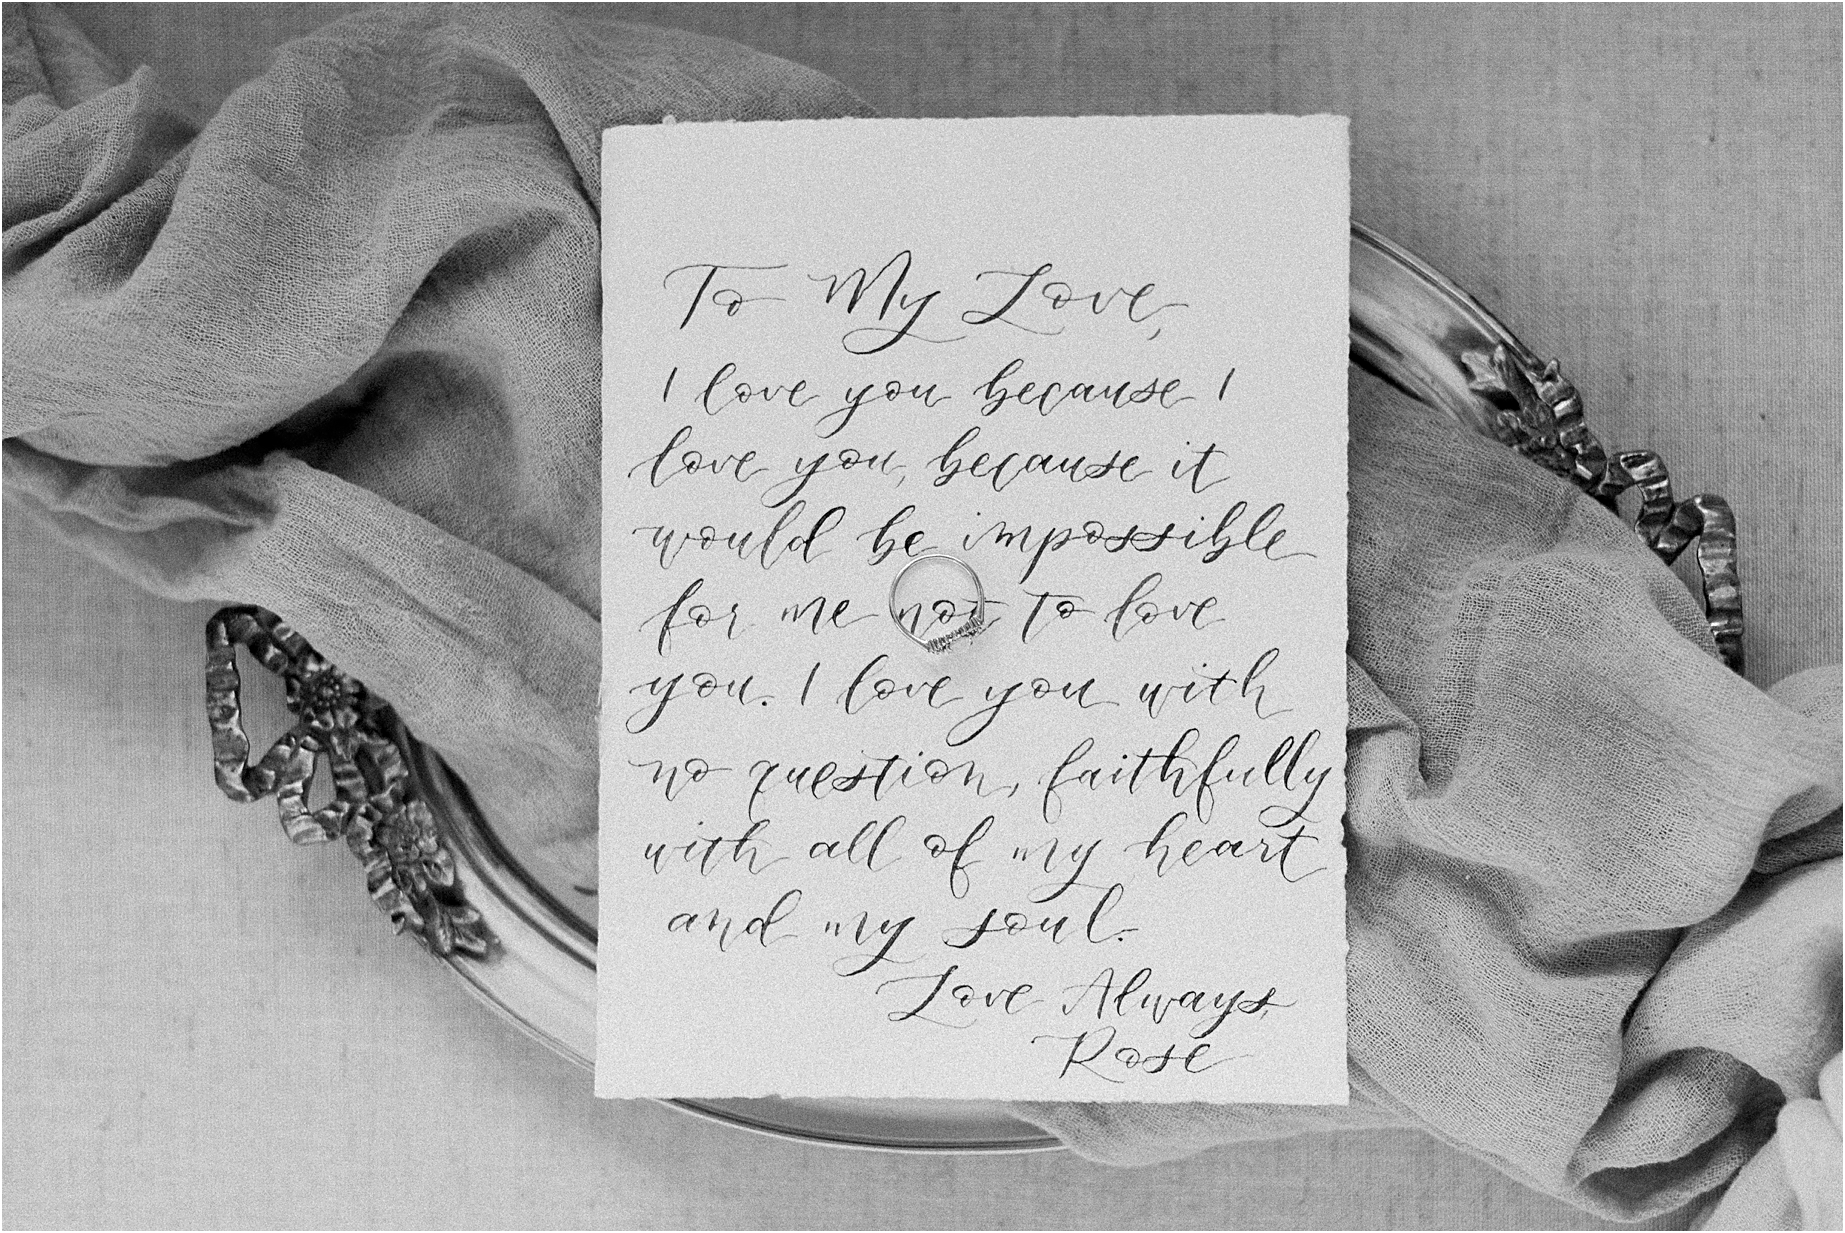 To My Love,
I love you because I
love you, because it
would be impossible
for me not to love
you. I love you with
no question, faithfully
with all of my heart
and my soul.
Love Always,
Rose